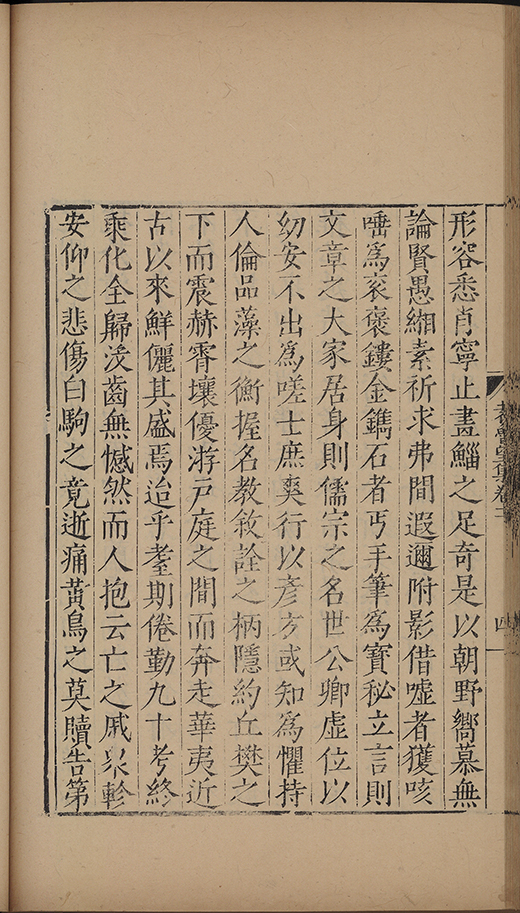 形容悉肖寧止畫鯔之足奇是以朝野嚮慕無
論賢愚緗素祈求弗間遐邇附影借噓者獲咳
唾爲衮褒鏤金鐫石者丐手筆爲寶秘立言則
文章之大家居身則儒宗之名世公卿虛位以
幼安不出爲嗟士庶爽行以彦方或知爲懼持
人倫品藻之衡握名教敘詮之柄隱約丘樊之
下而震赫霄壤優游戸庭之間而奔走華夷近
古以來鮮儷其盛焉迨乎耋期倦勤九十考終
乘化全歸没齒無憾然而人抱云亡之戚衆軫
安仰之悲傷白駒之竟逝痛黃鳥之莫贖告第
袁魯望集卷
四